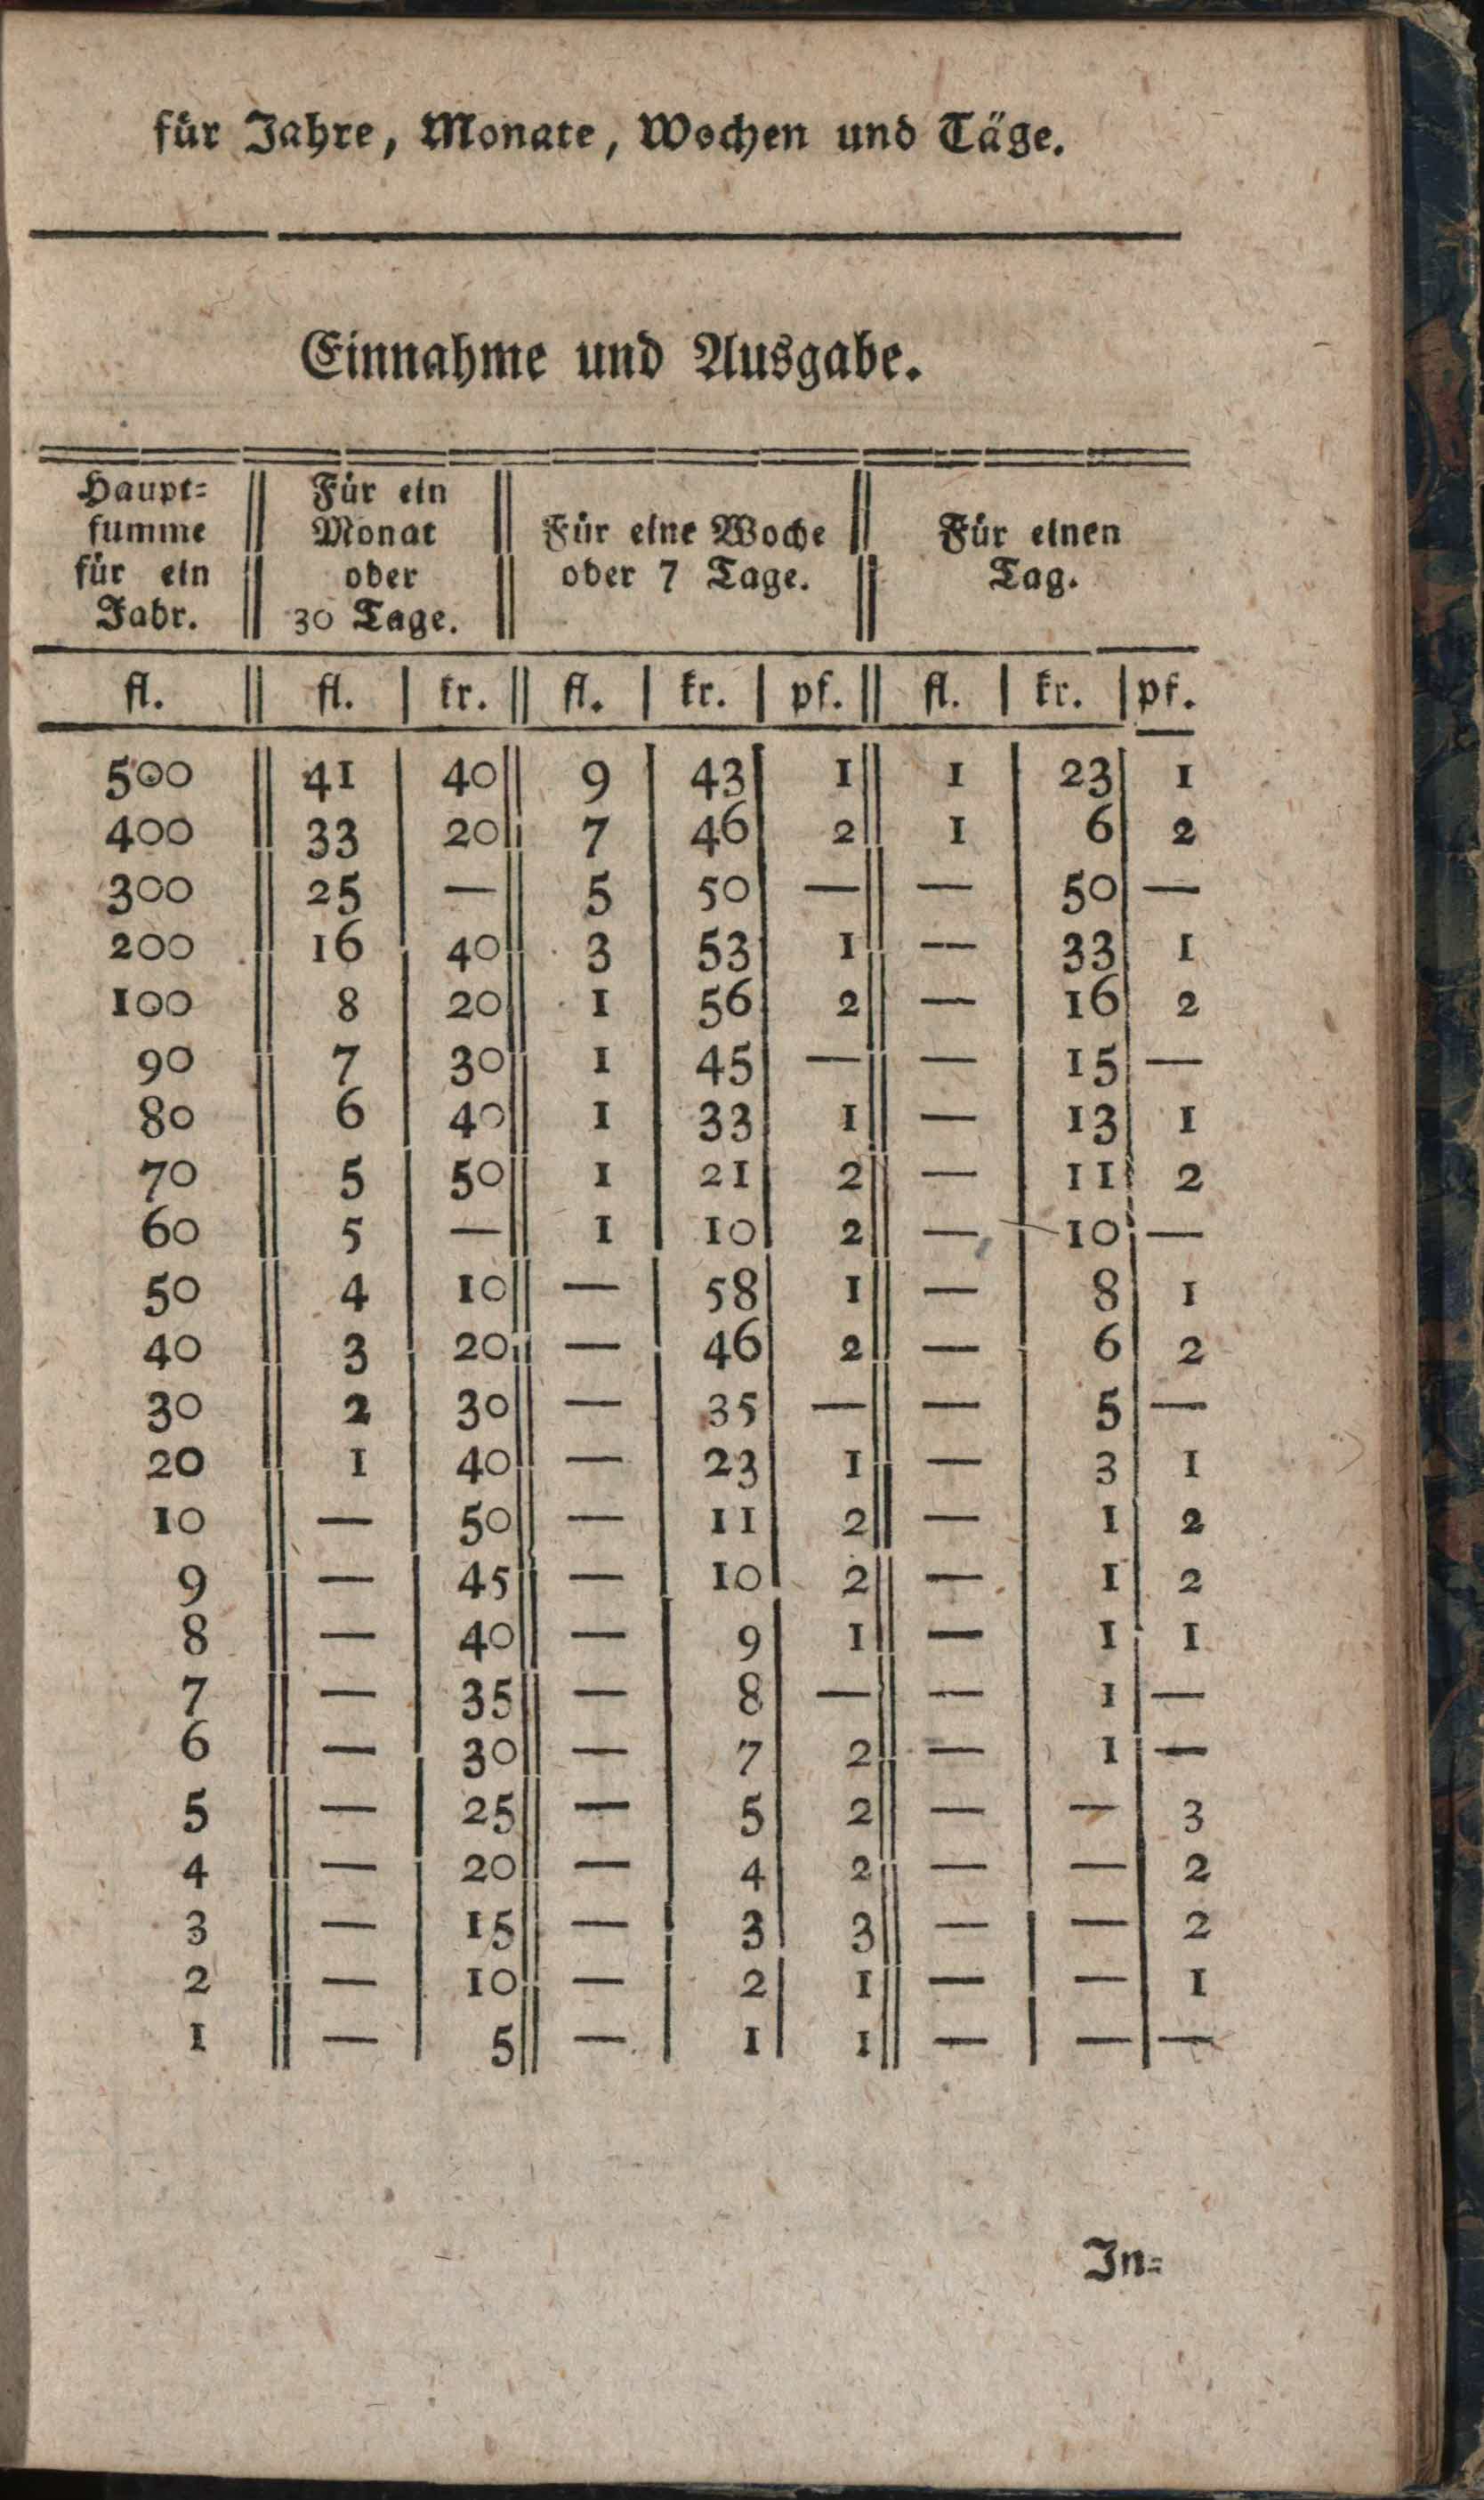 für Jahre, Monate, Wochen und Täge.
Einnahme und Ausgabe.
Haupt= summe für ein Jahr. || Für ein Monat oder 30 Tage. || Für eine Woche oder 7 Tage. || Für einen Tag.
fl. || fl. | kr. || fl. | kr. | pf. || fl. | kr. | pf.
500 || 41 | 40 || 9 | 43 | 1 || 1 | 23 | 1
400 || 33 | 20 || 7 | 46 | 2 || 1 | 6 | 2
300 || 25 | — || 5 | 50 | — || — | 50 | —
200 || 16 | 40 || 3 | 53 | 1 || — | 33 | 1
100 || 8 | 20 || 1 | 56 | 2 || — | 16 | 2
90 || 7 | 30 || 1 | 45 | — || — | 15 | —
80 || 6 | 40 || 1 | 33 | 1 || — | 13 | 1
70 || 5 | 50 || 1 | 21 | 2 || — | 11 | 2
60 || 5 | — || 1 | 10 | 2 || — | 10 | —
50 || 4 | 10 || — | 58 | 1 || — | 8 | 1
40 || 3 | 20 || — | 46 | 2 || — | 6 | 2
30 || 2 | 30 || — | 35 | — || — | 5 | —
20 || 1 | 40 || — | 23 | 1 || — | 3 | 1
10 || — | 50 || — | 11 | 2 || — | 1 | 2
9 || — | 45 || — | 10 | 2 || — | 1 | 2
8 || — | 40 || — | 9 | 1 || — | 1 | 1
7 || — | 35 || — | 8 | — || — | 1 | —
6 || — | 30 || — | 7 | 2 || — | 1 | —
5 || — | 25 || — | 5 | 2 || — | — | 3
4 || — | 20 || — | 4 | 2 || — | — | 2
3 || — | 15 || — | 3 | 3 || — | — | 2
2 || — | 10 || — | 2 | 1 || — | — | 1
1 || — | 5 || — | 1 | 1 || — | — | —
In=